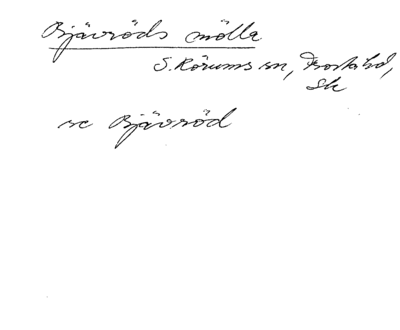 Bjävröds mölla
S. Rörums sn, Frosta hd,
Sk
se Bjävröd